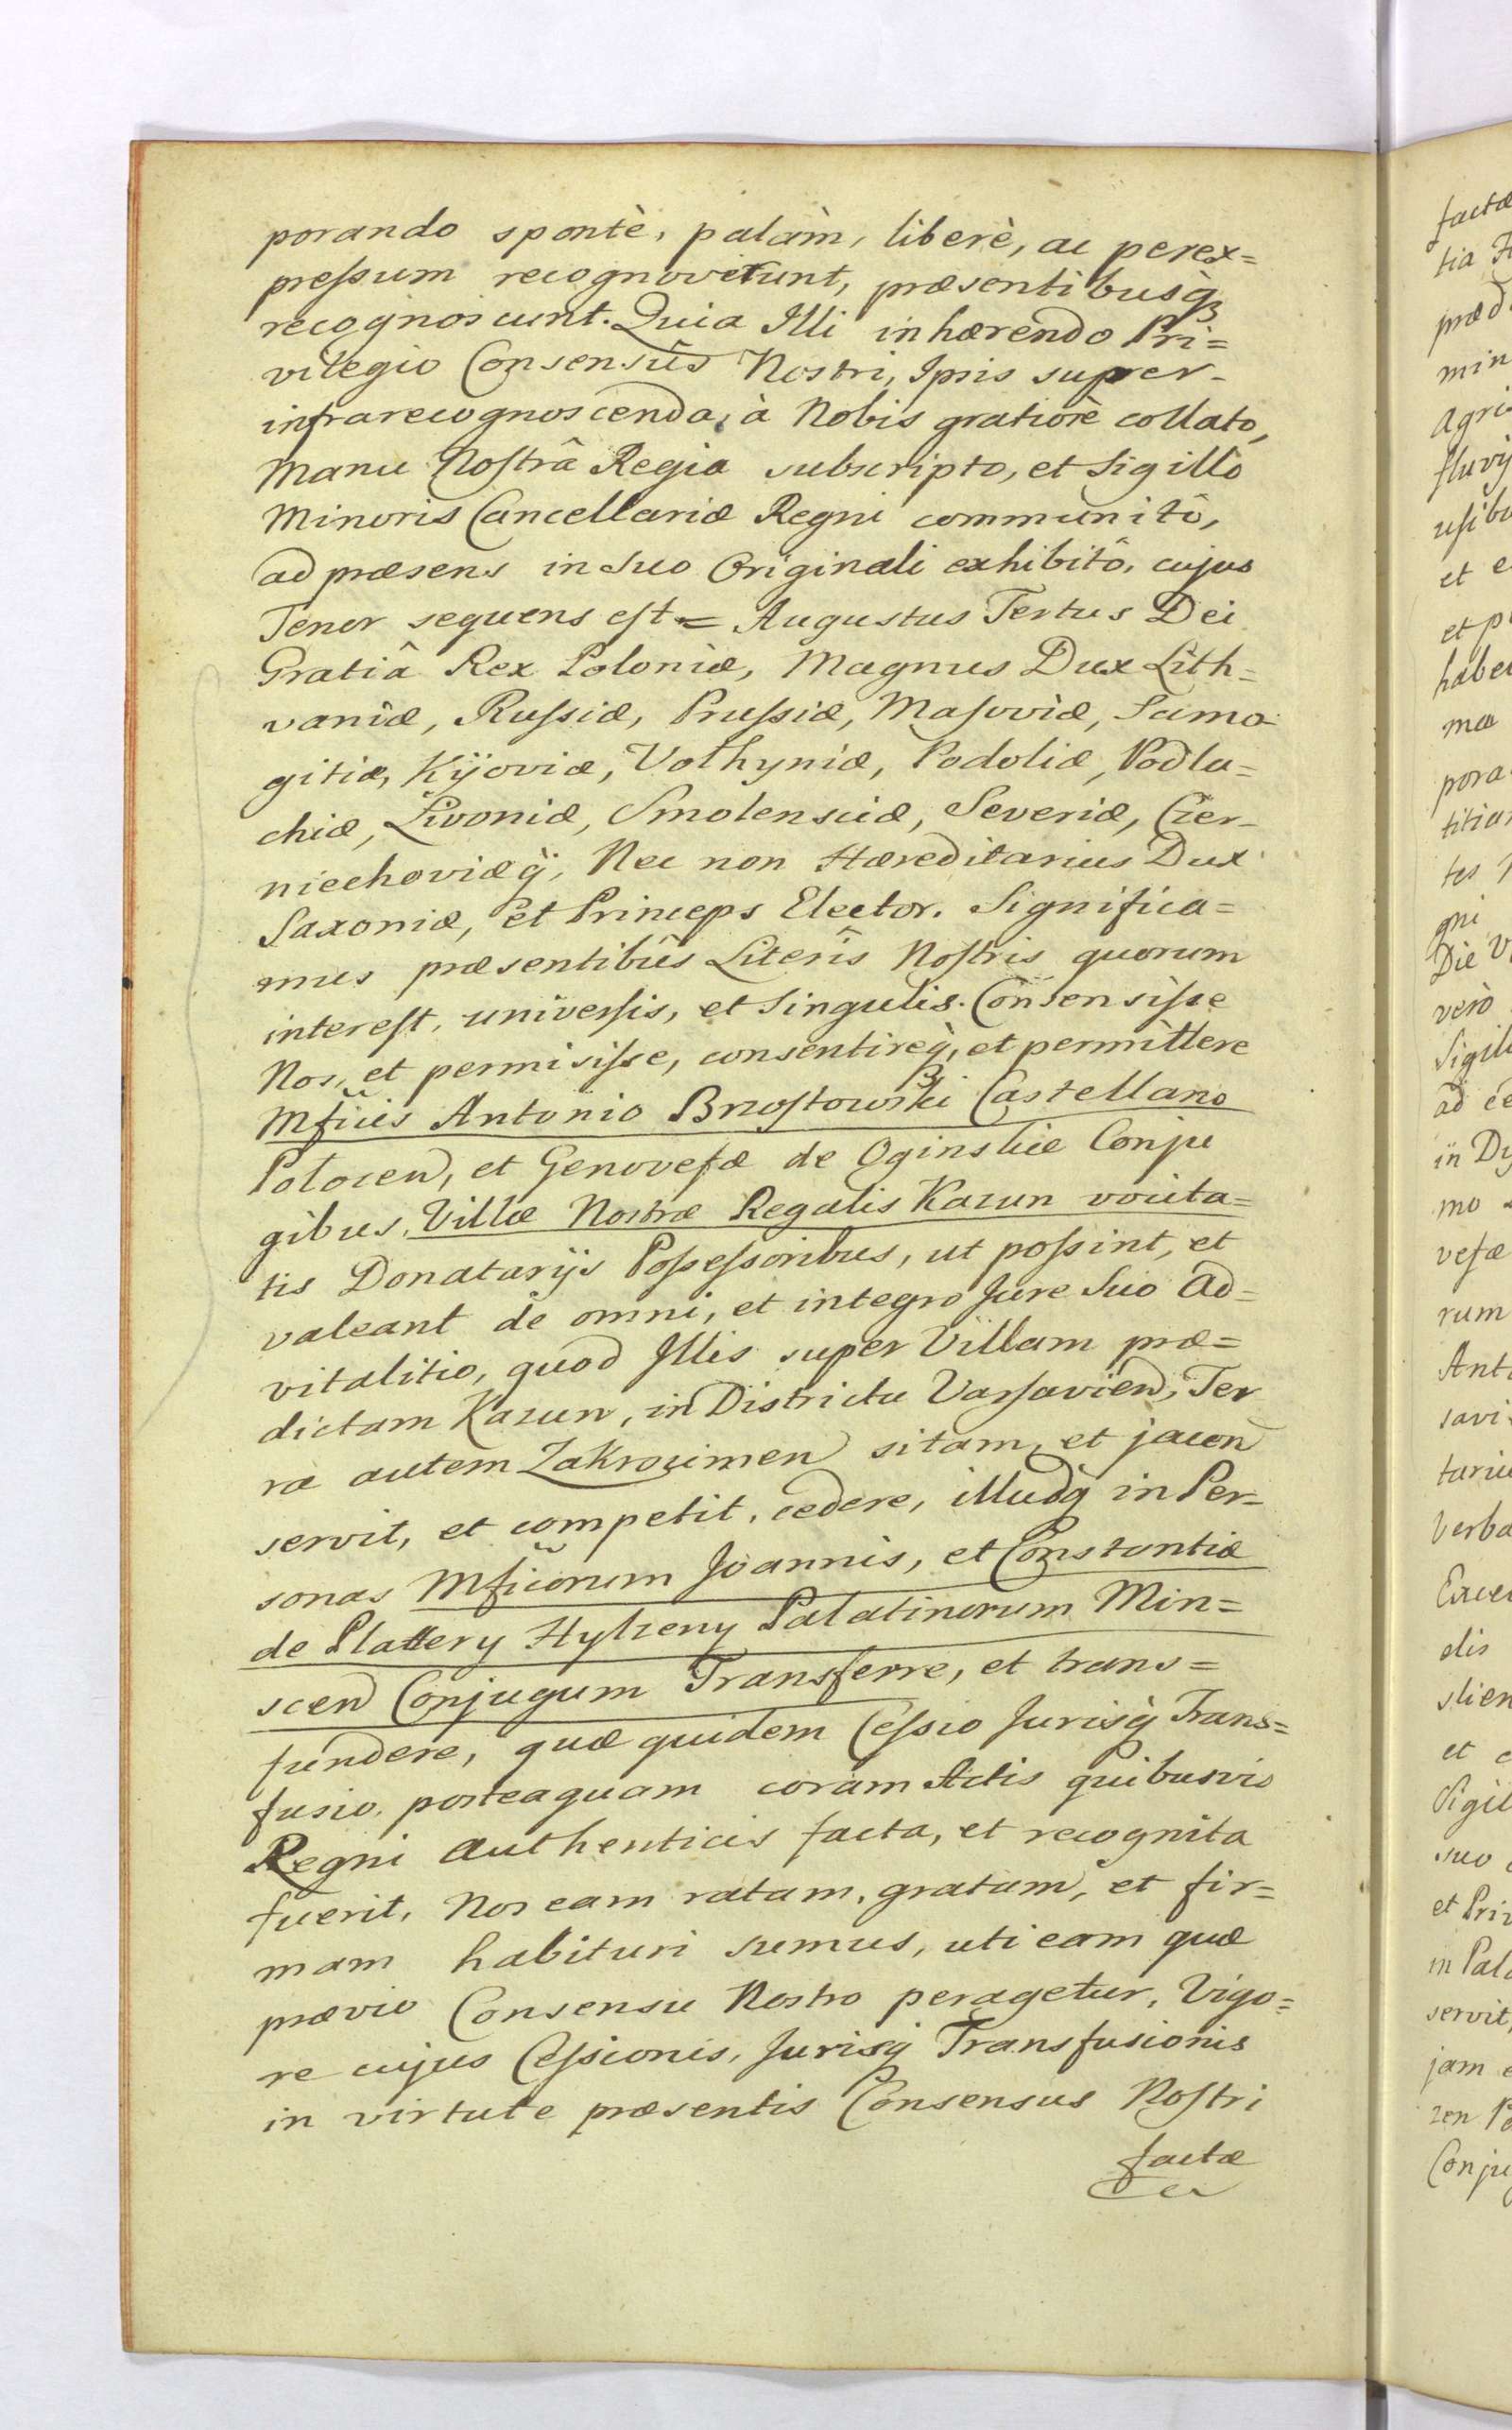 porando spontè, palàm, liberè, ac perex=
pressum recognoverunt, præsentibusq̀
recognoscunt. Quia Illi inhærendo Pri=
vilegio Consensûs Nostri, Ipsis super
infrarecognoscenda, à Nobis gratiosè collato,
Manu Nostrâ Regia subscripto, et Sigillo
Minoris Cancellariæ Regni communitô,
ad præsens in suo Originali exhibitô, cujus
Tenor sequens est = Augustus Tertus Dei
Gratiâ Rex Poloniæ, Magnus Dux Lith=
vaniæ, Russiæ, Prussiæ, Masoviæ, Samo
gitiæ, Kijoviæ, Volhyniæ, Podoliæ, Podla=
chiæ, Livoniæ, Smolensciæ, Severiæ, Czer-
niechoviæq̀, Nec non Hæreditarius Dux
Saxoniæ, et Princeps Elector. Significa=
mus præsentibûs Literîs Nostris quorum
interest, universis, et Singulis. Consensisse
Nos, et permisisse, consentireq̀, et permittere
Mficis Antonio Brzostowski Castellano
Polocen, et Genovefæ de Oginskie Conju
gibus, Villæ Nostræ Regalis Kazun vocita=
tis Donatarijs Possessoribus, ut possint, et
valeant de omni, et integro Jure Suo ad=
vitalitio, quod Illis super Villam præ=
dictam Kazun, in Districtu Varsavien, Ter
ra autem Zakrozimen sitam, et jacen
servit, et competit, cedere, illudq̀ in Per-
sonas Mficorum Joannis, et Constantiæ
de Plattery Hylzeny Palatinorum Min=
scen Conjugum Transferre, et trans=
fundere, quæ quidem Cessio Jurisq̀ Trans=
fusio, posteaquam coram Actis quibusvis
Regni Authenticis facta, et recognita
fuerit, Nos eam ratam, gratam, et fir=
mam habituri sumus, uti eam quæ
prævio Consensu Nostro peragetur, Vigo=
re cujus Cessionis, Jurisq̀ Transfusionis
in virtute præsentis Consensus Nostri
factæ